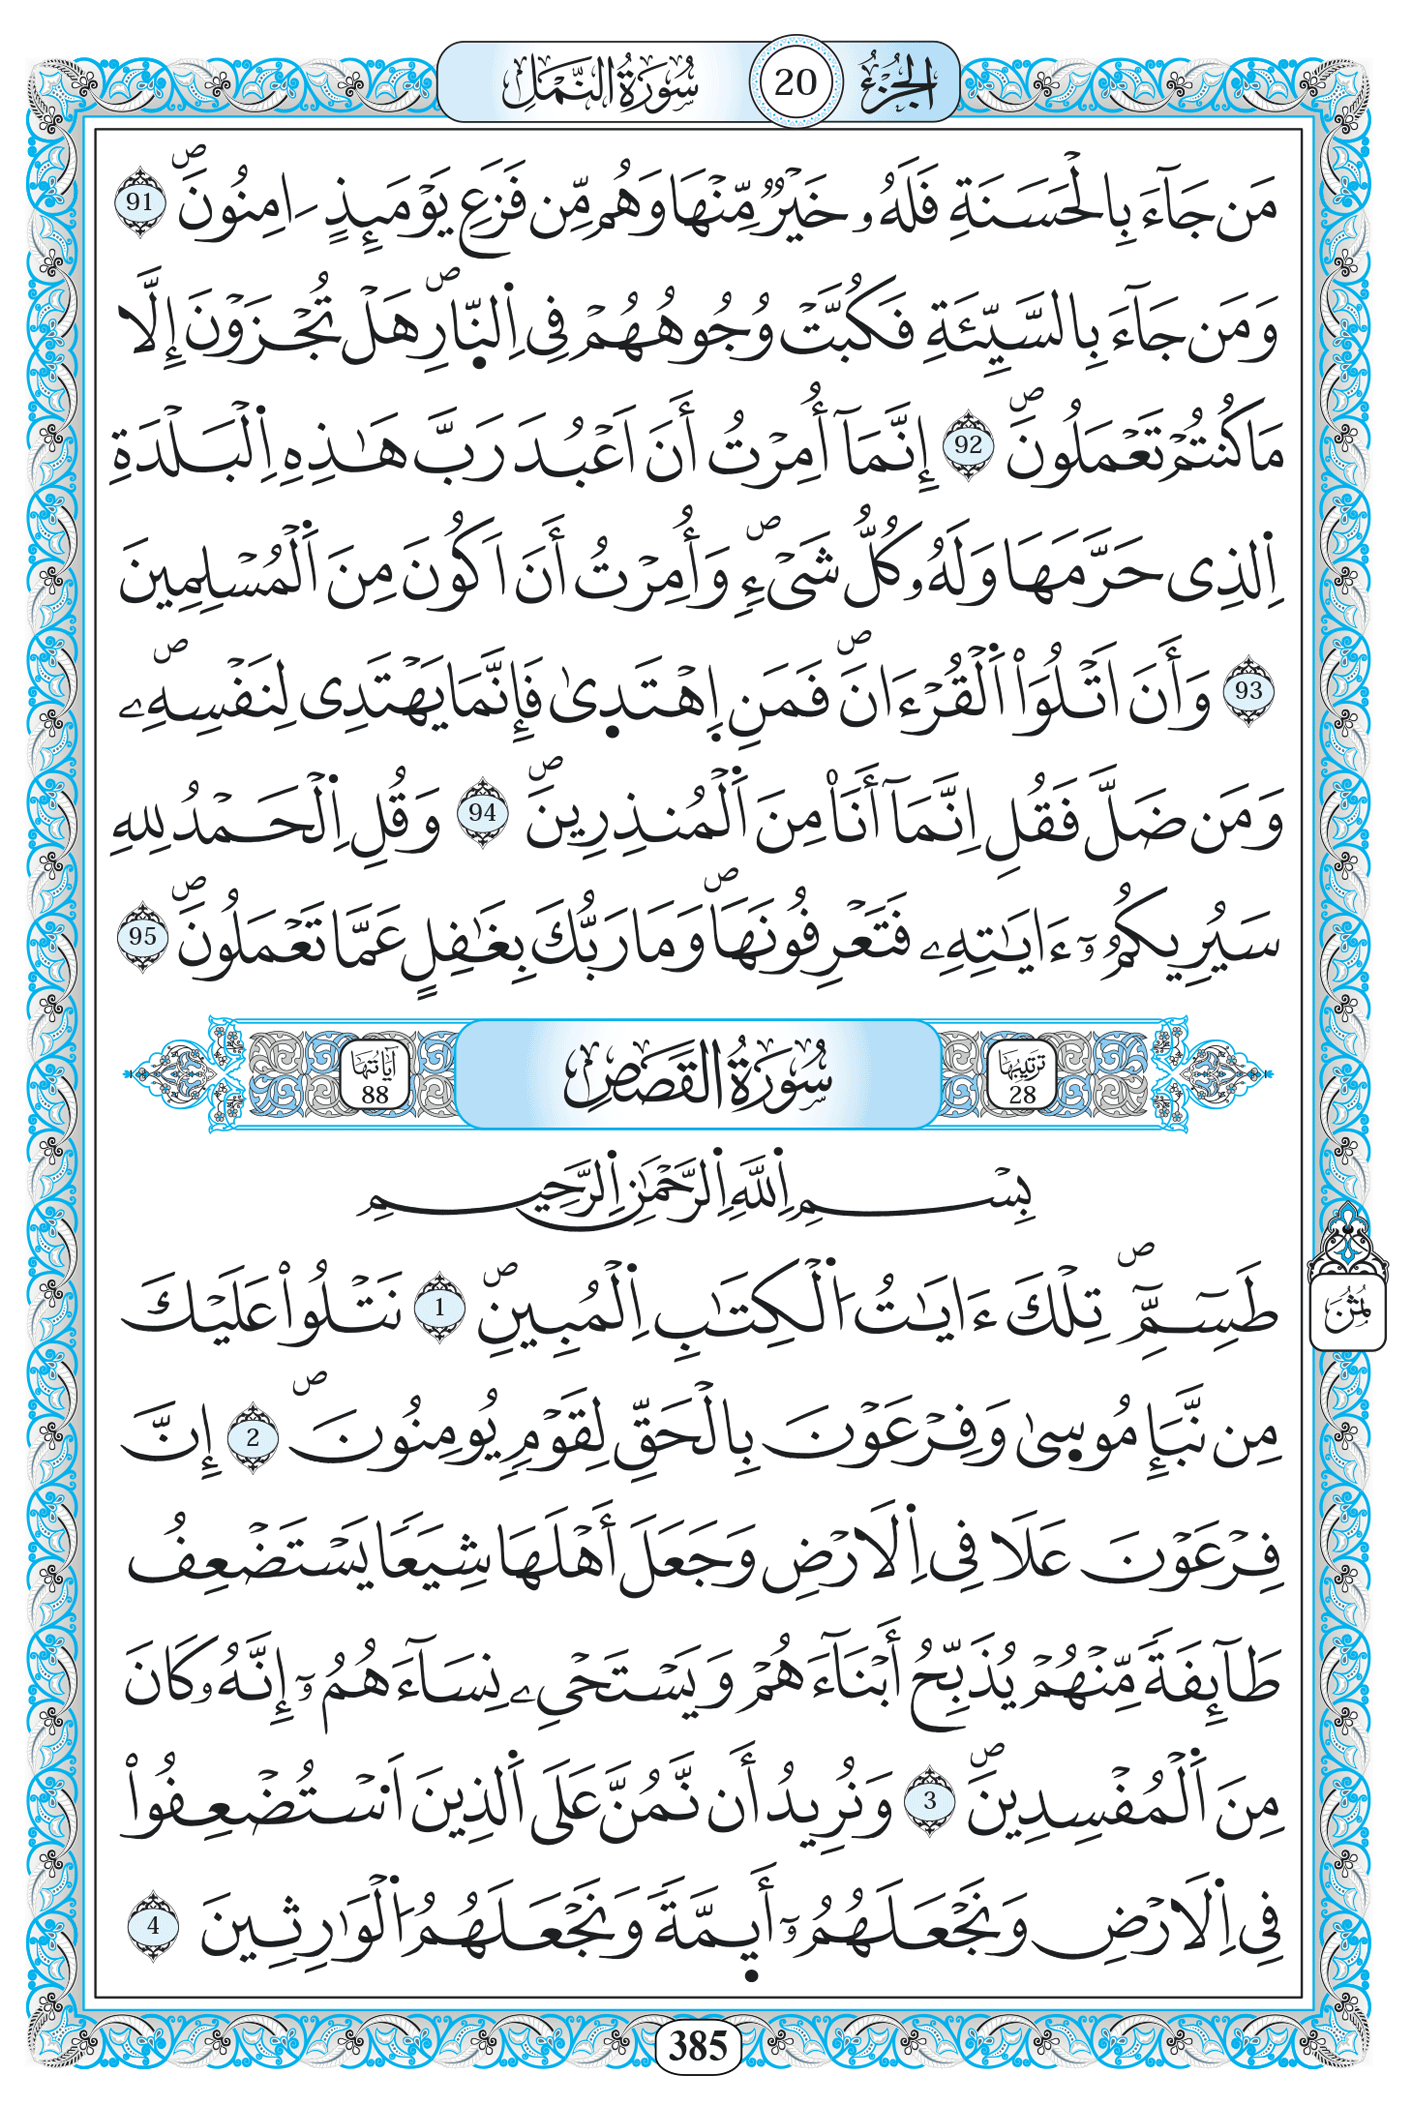 الجزء 20 سورة النمل
مَن جَآءَ بِالْحَسَنَةِ فَلَهُۥ خَيْرٌ مِّنْهَا وَهُم مِّن فَزَعِ يَوْمَئِذٍ ـَامِنُونَۖ 91
وَمَن جَآءَ بِالسَّيِّئَةِ فَكُبَّتْ وُجُوهُهُمْ فِي اِ۬لنّ۪ارِۖ هَلْ تُجْزَوْنَ إِلَّا
مَا كُنتُمْ تَعْمَلُونَۖ 92 إِنَّمَآ أُمِرْتُ أَنَ اَعْبُدَ رَبَّ هَٰذِهِ اِ۬لْبَلْدَةِ
اِ۬لذِي حَرَّمَهَا وَلَهُۥ كُلُّ شَيْءٍۖ وَأُمِرْتُ أَنَ اَكُونَ مِنَ اَ۬لْمُسْلِمِينَ
93 وَأَنَ اَتْلُوَاْ اَ۬لْقُرْءَانَۖ فَمَنِ اِ۪هْتَد۪ىٰ فَإِنَّمَا يَهْتَدِي لِنَفْسِهِۦۖ
وَمَن ضَلَّ فَقُلِ اِنَّمَآ أَنَا۠ مِنَ اَ۬لْمُنذِرِينَۖ 94 وَقُلِ اِ۬لْحَمْدُ لِلهِ
سَيُرِيكُمُۥٓ ءَايَٰتِهِۦ فَتَعْرِفُونَهَاۖ وَمَا رَبُّكَ بِغَٰفِلٍ عَمَّا تَعْمَلُونَۖ 95
ترتيبها 28 سُورَةُ القَصَصِ آياتها 88
بِسْمِ اِ۬للَّهِ اِ۬لرَّحْمَٰنِ اِ۬لرَّحِيمِ
طَسِٓمِّٓۖ تِلْكَ ءَايَٰتُ اُ۬لْكِتَٰبِ اِ۬لْمُبِينِۖ 1 نَتْلُواْ عَلَيْكَ
ثُمُن
مِن نَّبَإِ مُوس۪ىٰ وَفِرْعَوْنَ بِالْحَقِّ لِقَوْمٍ يُومِنُونَۖ 2 إِنَّ
فِرْعَوْنَ عَلَا فِي اِ۬لَارْضِ وَجَعَلَ أَهْلَهَا شِيَعاً يَسْتَضْعِفُ
طَآئِفَةً مِّنْهُمْ يُذَبِّحُ أَبْنَآءَهُمْ وَيَسْتَحْيِۦ نِسَآءَهُمُۥٓ إِنَّهُۥ كَانَ
مِنَ اَ۬لْمُفْسِدِينَۖ 3 وَنُرِيدُ أَن نَّمُنَّ عَلَى اَ۬لذِينَ اَ۟سْتُضْعِفُواْ
فِي اِ۬لَارْضِ وَنَجْعَلَهُمُۥٓ أَي۪مَّةً وَنَجْعَلَهُمُ اُ۬لْوَٰرِثِينَ 4
385